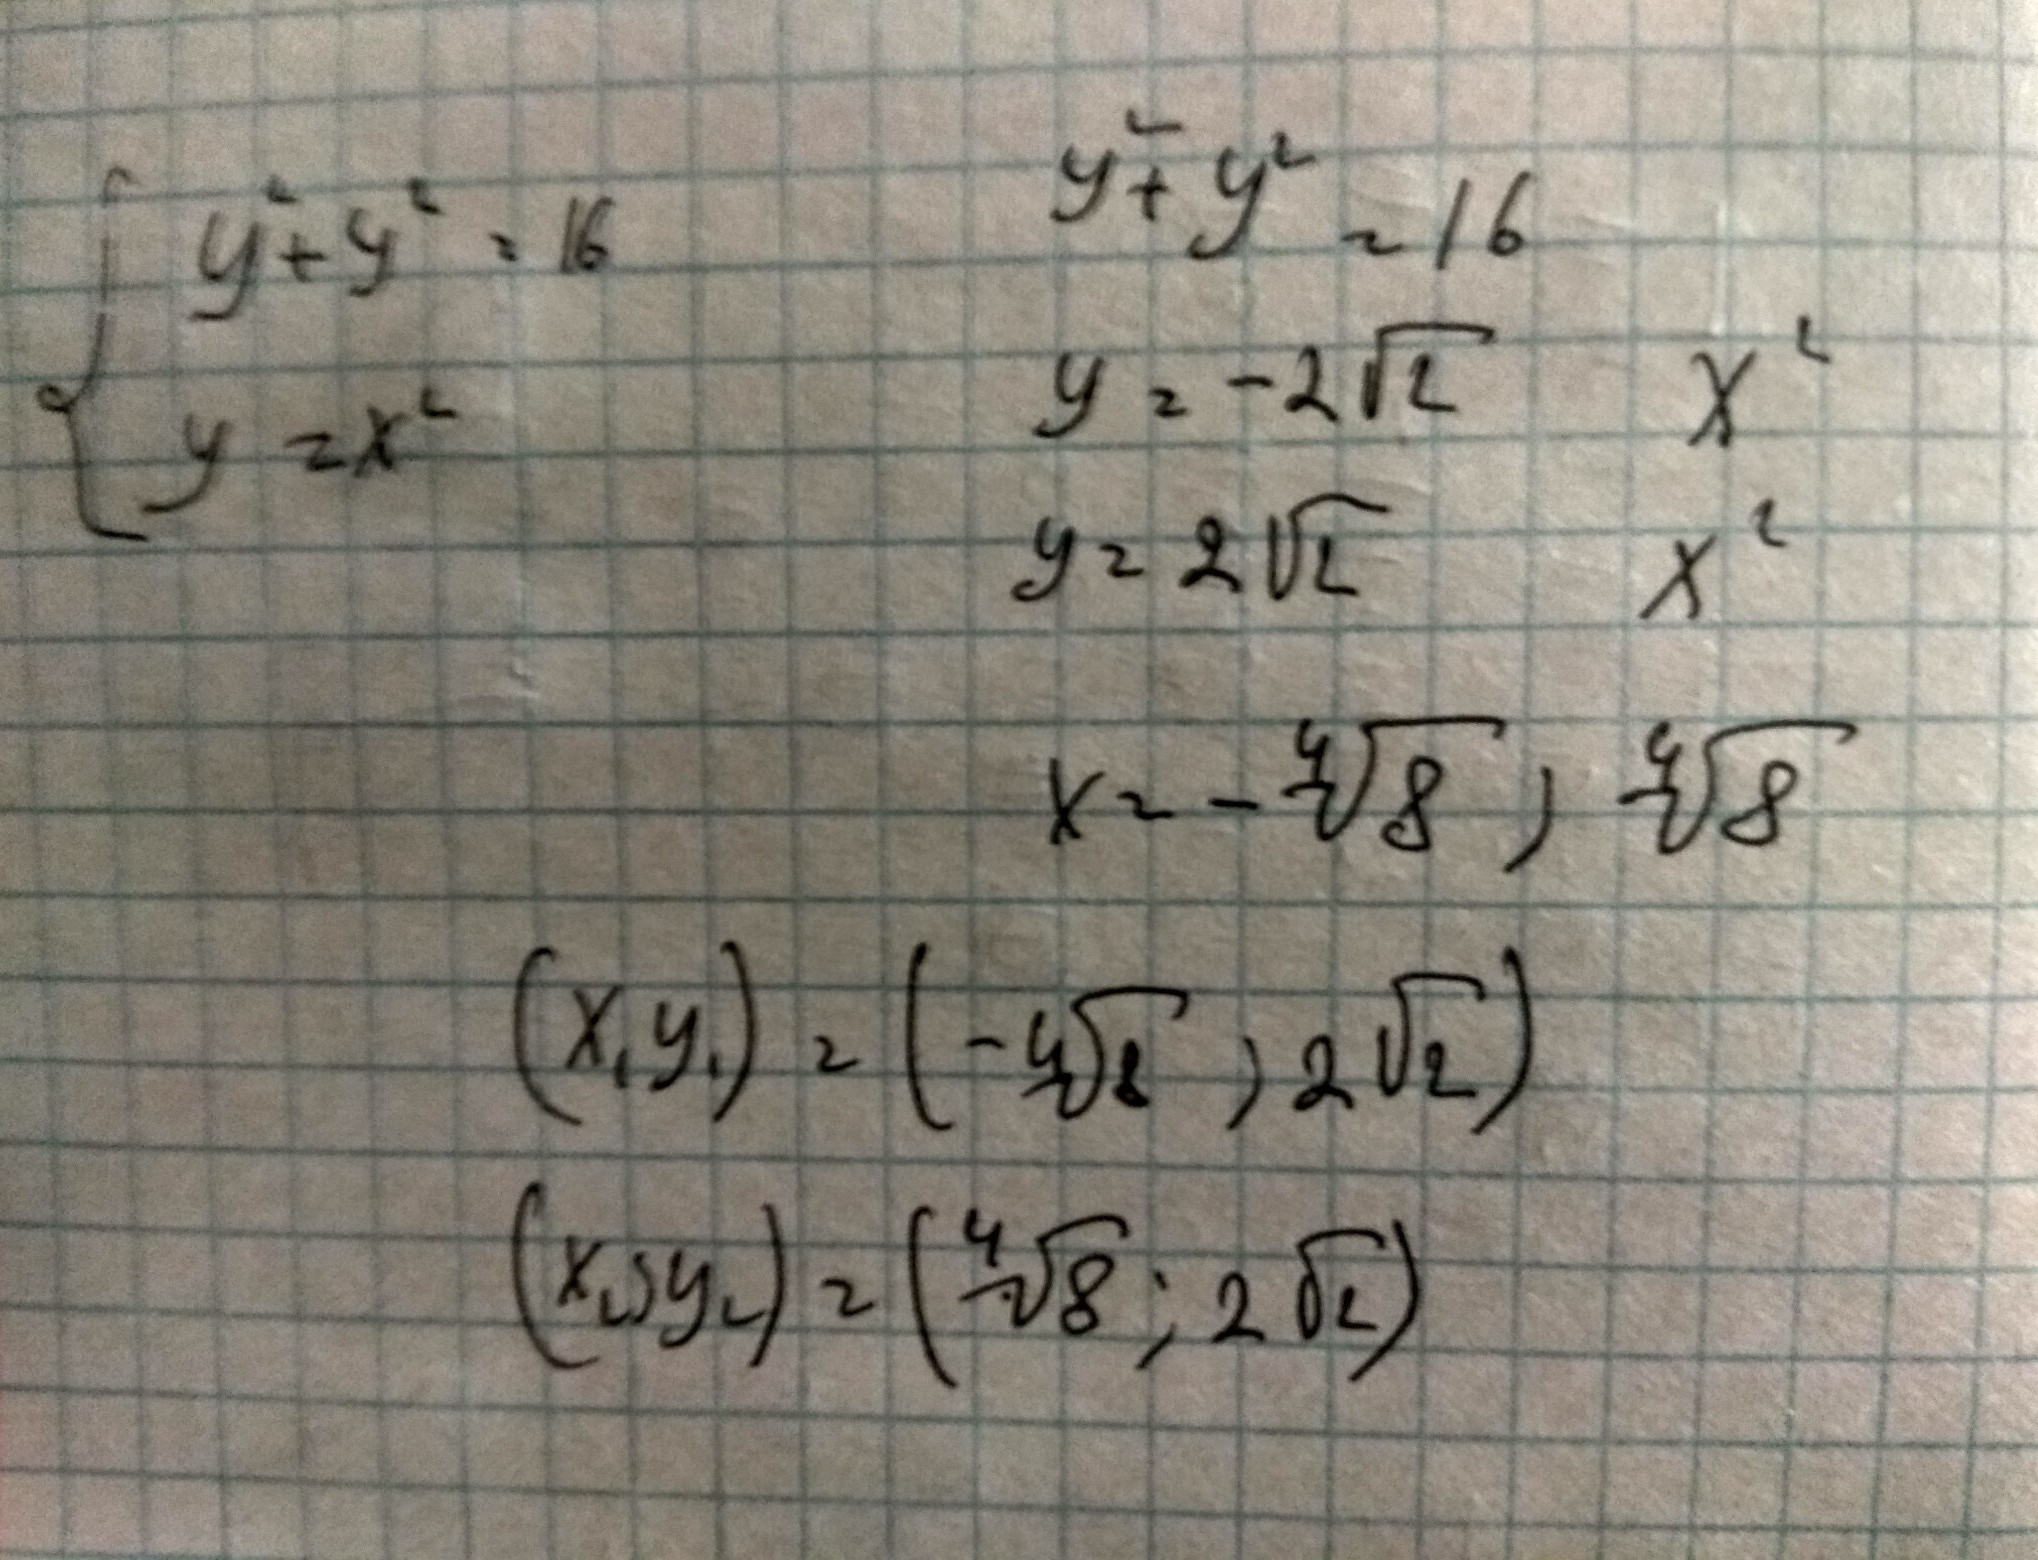 y² + y² = 16
y = x²
y² + y² = 16
y = -2√2 x²
y = 2√2 x²
x = -⁴√8 ; ⁴√8
(x₁ y₁) = (-⁴√8 ; 2√2)
(x₂; y₂) = (⁴√8 ; 2√2)